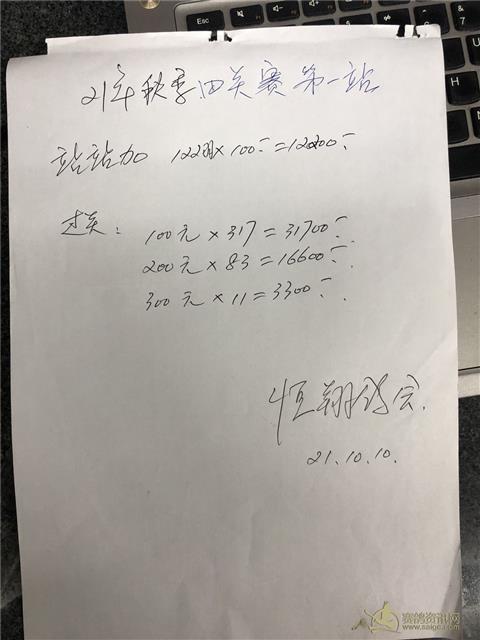 21年秋季四关赛第一站
站站加 122羽×100元=12200元
过关: 100元×317=31700元
200元×83=16600元
300元×11=3300元
恒翔鸽会.
21.10.10.
赛鸽资讯网
www.saige.com